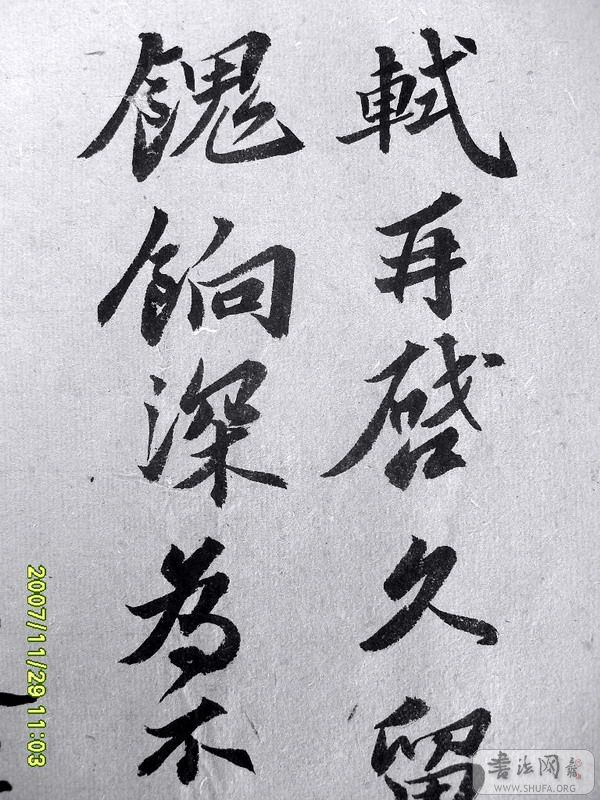 軾再啓久留
餽餉深為不
2007/11/29 11:03
书法网
WWW.SHUFA.ORG